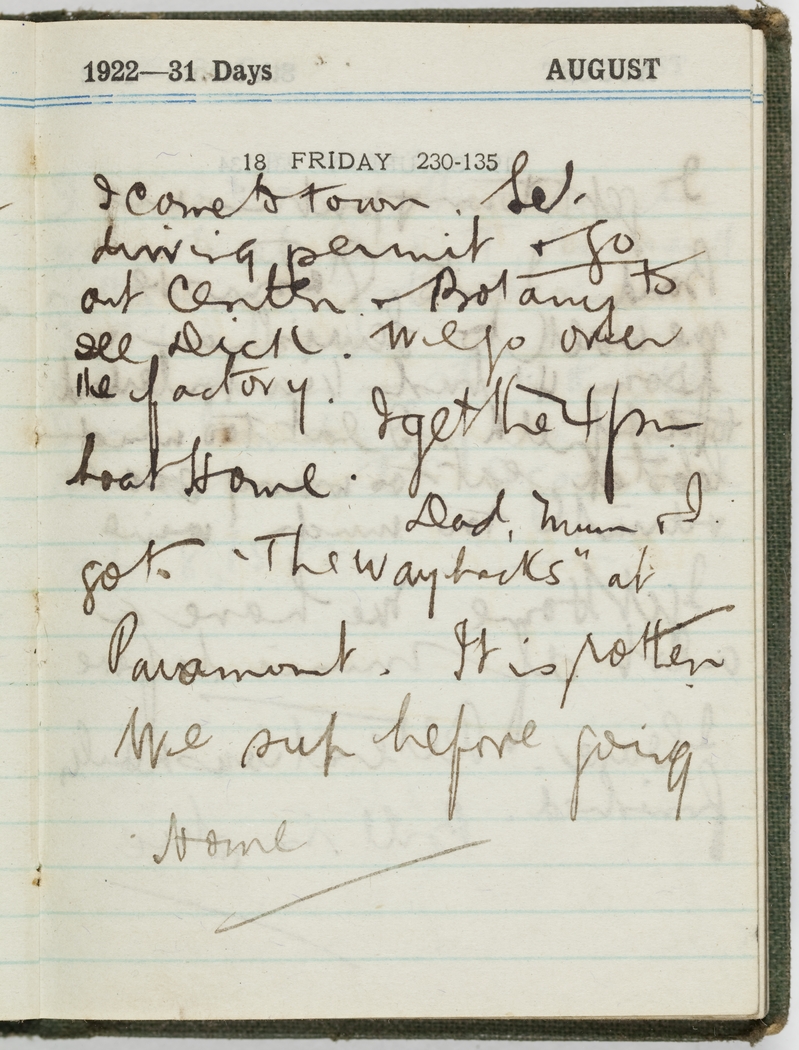 1922—31 Days AUGUST
18 FRIDAY 230-135
I come to town. Get
driving permit & go
out Centen & Botany to
see Dick. We go over
the factory.
I get the 4 pm
boat Home.
Dad, Mum & I.
go to "The Waybacks" at
Paramount. It is rotten
We sup before going
Home